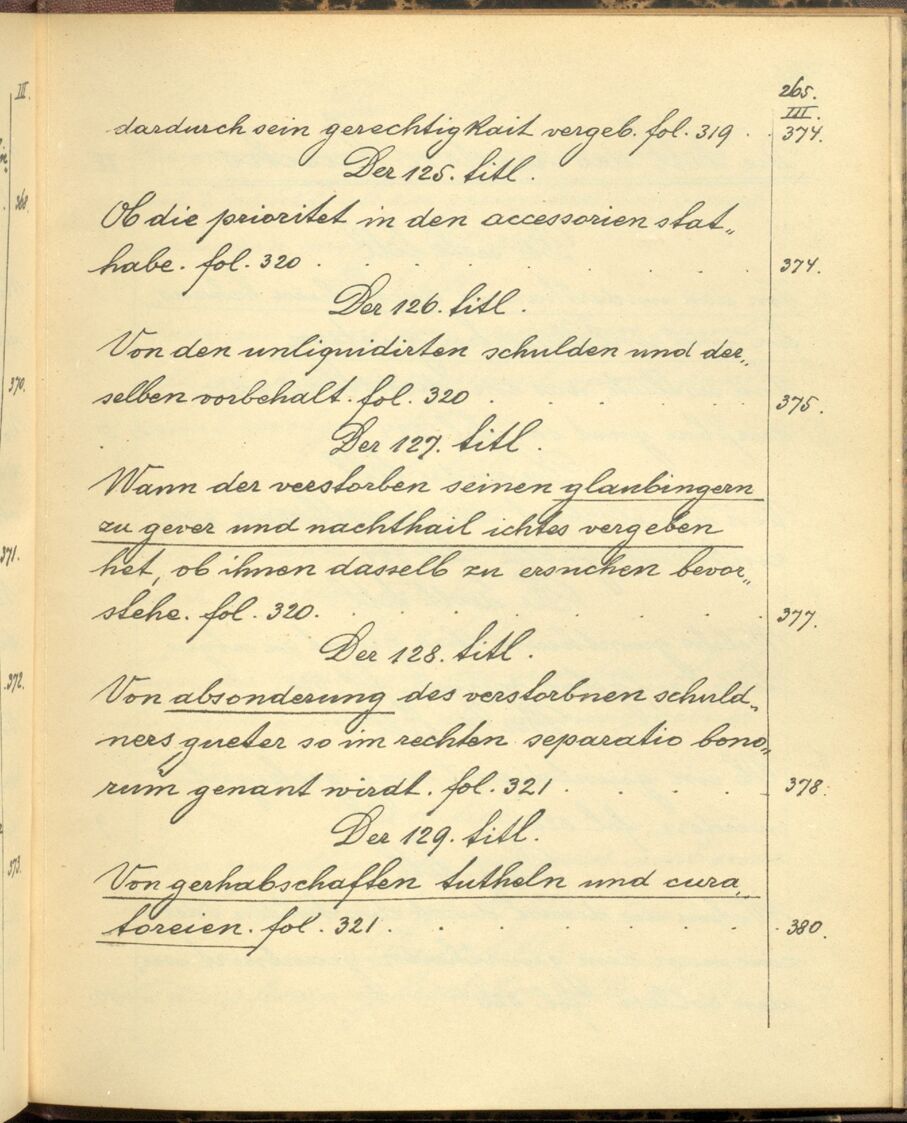 265.
III.
dardurch sein gerechtigkait vergeb. fol. 319 . . 374.
Der 125. titl.
Ob die prioritet in den accessorien stat„
habe. fol. 320 . . . . . . . 374.
Der 126. titl.
Von den unliquidirten schulden und der„
selben vorbehalt. fol. 320 . . . . . . 375.
Der 127. titl.
Wann der verstorben seinen glaubingern
zu gever und nachthail ichtes vergeben
het, ob ihnen dasselb zu ersuchen bevor„
stehe. fol. 320. . . . . . . 377.
Der 128. titl.
Von absonderung des verstorbnen schuld„
ners gueter so im rechten separatio bono„
rum genant wirdt. fol. 321 . . . . . 378.
Der 129. titl.
Von gerhabschaften tutheln und cura„
toreien. fol. 321 . . . . . . . . 380.
III.
368.
370.
371.
372.
373.